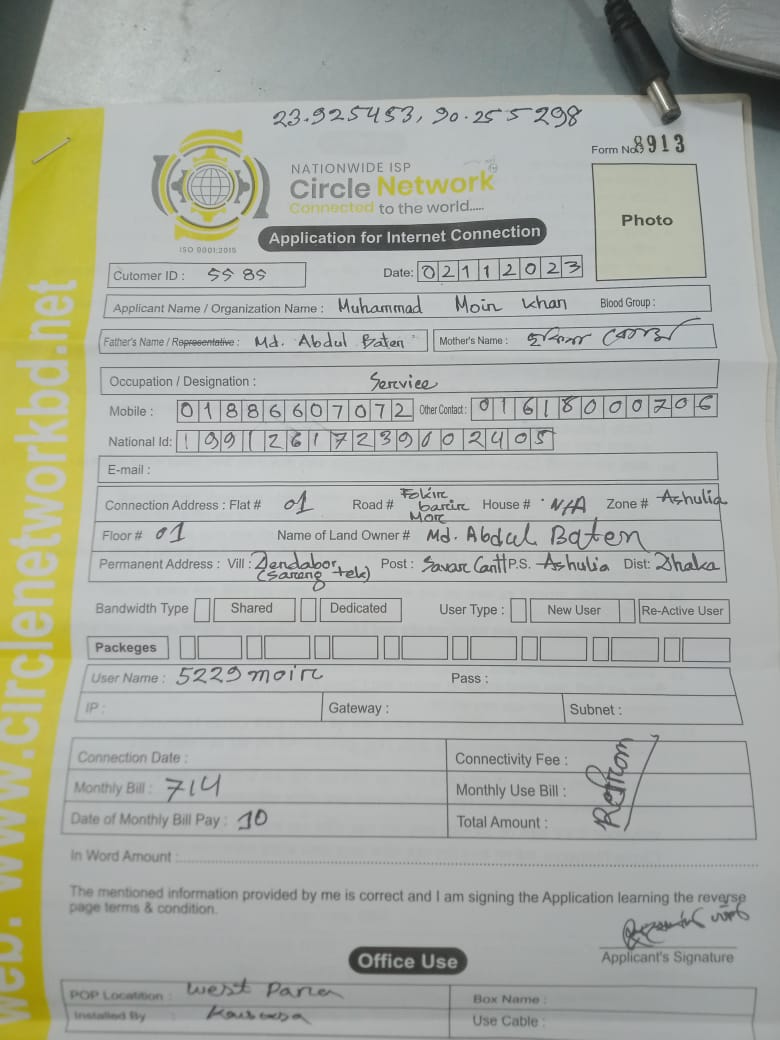 23.925453, 90.255298
Form No. 8913
NATIONWIDE ISP
Circle Network
Connected to the world.....
ISO 9001:2015
Photo
Application for Internet Connection
Cutomer ID : 5585 Date: 02112023
Applicant Name / Organization Name : Muhammad Moin Khan Blood Group :
Father's Name / Representative: Md. Abdul Baten Mother's Name :
Occupation / Designation : Service
Mobile : 01886607072 Other Contact : 01618000706
National Id: 19912617239002405
E-mail :
Connection Address : Flat # 01 Road # Fokir barir Mor House # N/A Zone # Ashulia
Floor # 01 Name of Land Owner # Md. Abdul Baten
Permanent Address : Vill : Dendabor (Sareng tek) Post : Savar Cantt P.S. Ashulia Dist: Dhaka
Bandwidth Type Shared Dedicated User Type : New User Re-Active User
Packeges
User Name : 5229moin Pass :
IP : Gateway : Subnet :
Connection Date : Connectivity Fee :
Monthly Bill : 714 Monthly Use Bill :
Date of Monthly Bill Pay : 10 Total Amount :
In Word Amount :
The mentioned information provided by me is correct and I am signing the Application learning the reverse
page terms & condition.
Applicant's Signature
Office Use
POP Locatition : West Para Box Name :
Installed By : Use Cable :
web: www.circlenetworkbd.net